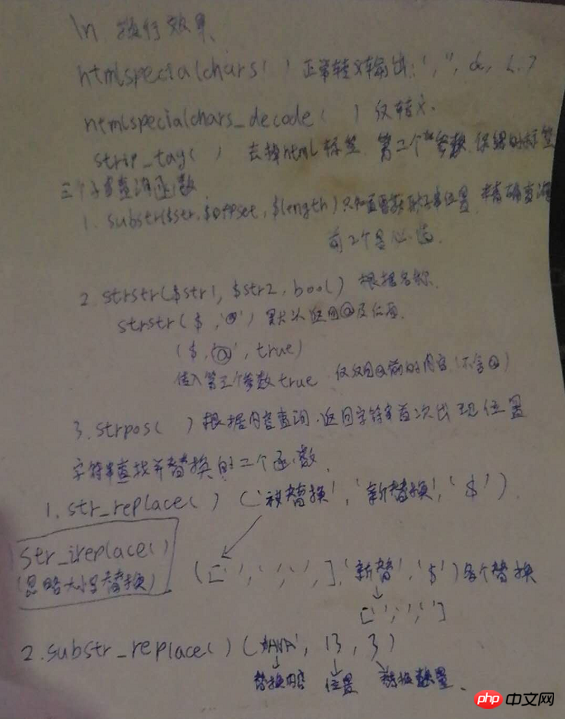 \n 换行效果
htmlspecialchars( ) 正常转义输出: ', ", &, <, >
htmlspecialchars_decode( ) 反转义.
strip_tag( ) 去掉html标签. 第二个参数, 保留的标签
三个子串查询函数
1. substr($str, $offset, $length) 只知道要获取的子串位置, 精确查询
前2个是必填.
2. strstr($str1, $str2, bool) 根据名称.
strstr($ ,'@') 默认返回@及后面.
($,'@', true)
传入第三个参数true, 仅返回@前的内容(不含@)
3. strpos( ) 根据内容查询, 返回字符串首次出现位置
字符串查找并替换的二个函数.
1. str_replace( ) ('被替换','新替换','$').
str_ireplace()
(忽略大小写替换)
([' ',' ',' ',],'新替','$')各个替换
[' ',' ',' ']
2. substr_replace( ) ( , 13, 3)
替换内容 位置 替换数量.
php 中文网